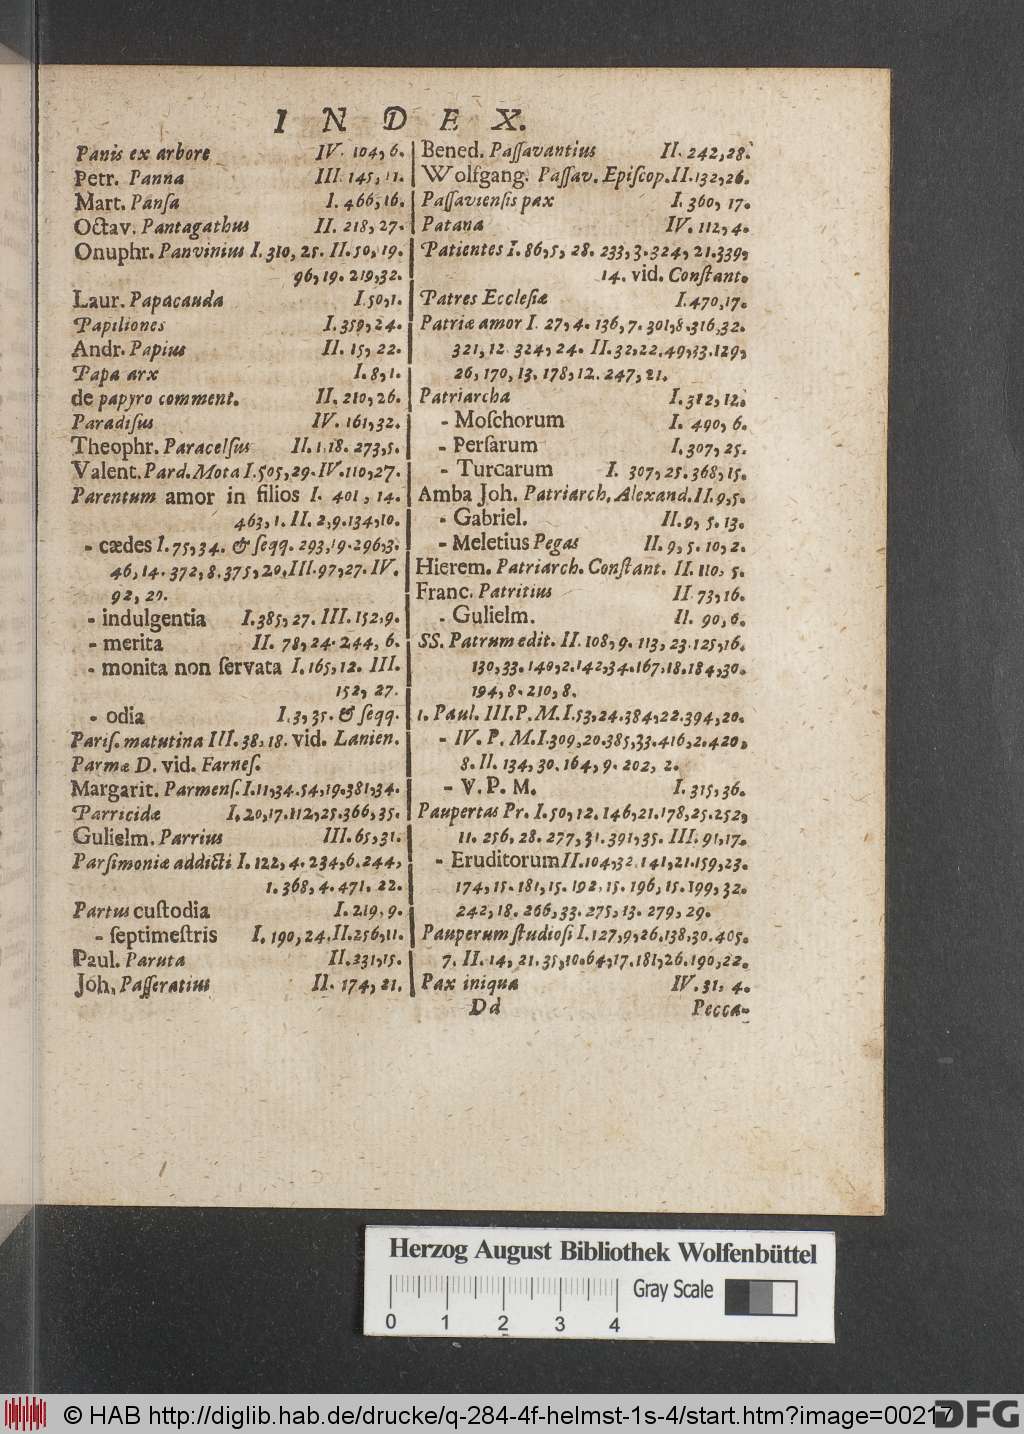 INDEX.
Panis ex arbore IV. 104, 6.
Petr. Panna III. 145, 11.
Mart. Panſa I. 466, 16.
Octav. Pantagathus II. 218, 27.
Onuphr. Panvinius I. 310, 25. II. 50, 19.
96, 19. 219, 32.
Laur. Papacauda I. 50, 1.
Papiliones I. 359, 24.
Andr. Papius II. 15, 22.
Papa arx I. 8, 1.
de papyro comment. II. 210, 26.
Paradiſus IV. 161, 32.
Theophr. Paracelſus II. 1, 18. 273, 5.
Valent. Pard. Mota I. 505, 29. IV. 110, 27.
Parentum amor in filios I. 401, 14.
463, 1. II. 2, 9. 134, 10.
- cædes I. 75, 34. & ſeqq. 293, 19. 296, 3.
46, 14. 372, 8. 375, 20. III. 97, 27. IV.
92, 20.
- indulgentia I. 385, 27. III. 152, 9.
- merita II. 78, 24. 244, 6.
- monita non ſervata I. 165, 12. III.
152, 27.
- odia I. 3, 35. & ſeqq.
Pariſ. matutina III. 38, 18. vid. Lanien.
Parmæ D. vid. Farneſ.
Margarit. Parmenſ. I. 11, 34. 54, 19. 381, 34.
Parricidæ I. 20, 17. 112, 25. 366, 35.
Gulielm. Parrius III. 65, 31.
Parſimoniæ addicti I. 122, 4. 234, 6. 244,
1. 368, 4. 471. 22.
Partus cuſtodia I. 219, 9.
- ſeptimeſtris I. 190, 24. II. 256, 11.
Paul. Paruta II. 231, 15.
Joh. Paſſeratius II. 174, 21.
Bened. Paſſavantius II. 242, 28.
Wolfgang. Paſſav. Epiſcop. II. 132, 26.
Paſſavienſis pax I. 360, 17.
Patana IV. 112, 4.
Patientes I. 86, 5, 28. 233, 3. 324, 21. 339,
14. vid. Conſtant.
Patres Eccleſiæ I. 470, 17.
Patriæ amor I. 27, 4. 136, 7. 301, 8. 316, 32.
321, 12. 324, 24. II. 32, 22. 49, 33. 129,
26, 170, 13. 178, 12. 247, 21.
Patriarcha I. 312, 12.
- Moſchorum I. 490, 6.
- Perſarum I. 307, 25.
- Turcarum I. 307, 25. 368, 15.
Amba Joh. Patriarch. Alexand. II. 9, 5.
- Gabriel. II. 9, 5. 13.
- Meletius Pegas II. 9, 5. 10, 2.
Hierem. Patriarch. Conſtant. II. 110, 5.
Franc. Patritius II 73, 16.
- Gulielm. II. 90, 6.
SS. Patrum edit. II. 108, 9. 113, 23. 125, 16.
130, 33. 140, 2. 142, 34. 167, 18. 184, 30.
194, 8. 210, 8.
1. Paul. III. P. M. I. 53, 24. 384, 22. 394, 20.
- IV. P. M. I. 309, 20. 385, 33. 416, 2. 420,
8. II. 134, 30. 164, 9. 202, 2.
- V. P. M. I. 315, 36.
Paupertas Pr. I. 50, 12. 146, 21. 178, 25. 252,
11. 256, 28. 277, 31. 391, 35. III. 91, 17.
- Eruditorum II. 104, 32. 141, 21. 159, 23.
174, 15. 181, 15. 192, 15. 196, 15. 199, 32.
242, 18. 266, 33. 275, 13. 279, 29.
Pauperum ſtudioſi I. 127, 9, 26. 138, 30. 405.
7. II. 14, 21. 35, 10. 64, 17. 181, 26. 190, 22.
Pax iniqua IV. 31, 4.
Dd Pecca-
Herzog August Bibliothek Wolfenbüttel
Gray Scale
0 1 2 3 4
© HAB http://diglib.hab.de/drucke/q-284-4f-helmst-1s-4/start.htm?image=00217
DFG